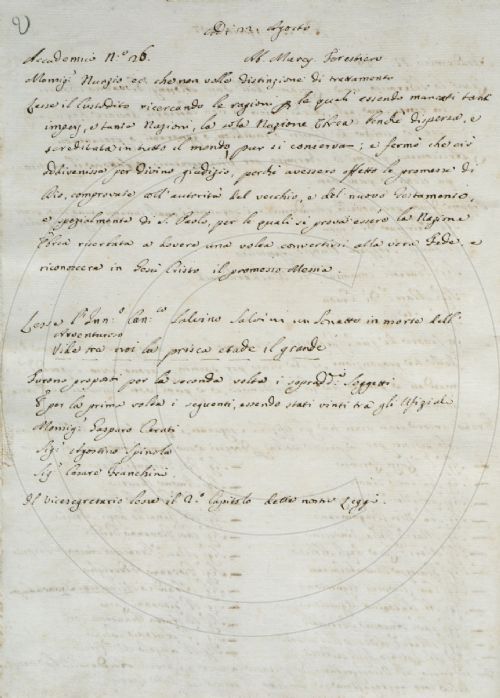 Adì 12. Agosto
Accademici N.º 26. Ab. Marcy Forestiero
Monsig.r Nunzio ec. che non volle distinzione di trattamento
Lesse il Custodito ricercando le ragioni p le quali essendo mancati tanti
imperj, e tante Nazioni, la sola Nazione Ebrea benchè dispersa, e
screditata in tutto il mondo pur si conservan; e fermò che ciò
addivenisse per divino giudizio, perchè avessero effetto le promesse di
Dio, comprovate coll'autorità del vecchio, e del nuovo Testamento,
e spezialmente di S. Paolo, per le quali si prova essere la Nazione
Ebrea riserbata a dovere una volta convertirsi alla vera Fede, e
riconoscere in Gesù Cristo il promesso Messia.
Lesse l'Inn.º Can.co Salvino Salvini un Sonetto in morte dell'
Avventuroso
Vide tra noi la prisca etade il grande
Furono proposti per la seconda volta i sopradd.i Soggetti
E per la prima volta i seguenti, essendo stati vinti tra gli Ufiziali
Monsig.r Gasparo Cerati
Sig.r Agostino Spinola
Sig.r Cesare Franchini
Il Vicesegretario lesse il 2.º Capitolo delle nostre Leggi.